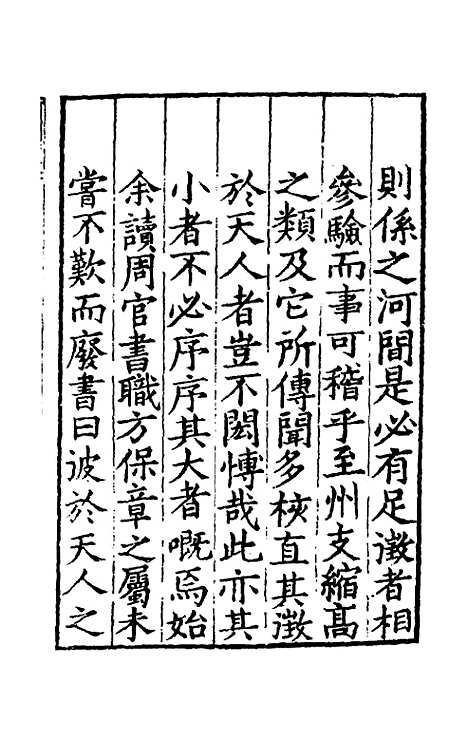 則係之河間是必有足徵者相
參驗而事可稽乎至州支縮高
之類及它所傳聞多核直其徵
於天人者豈不閎博哉此亦其
小者不必序序其大者嘅焉始
余讀周官書職方保章之屬未
嘗不歎而廢書曰彼於天人之